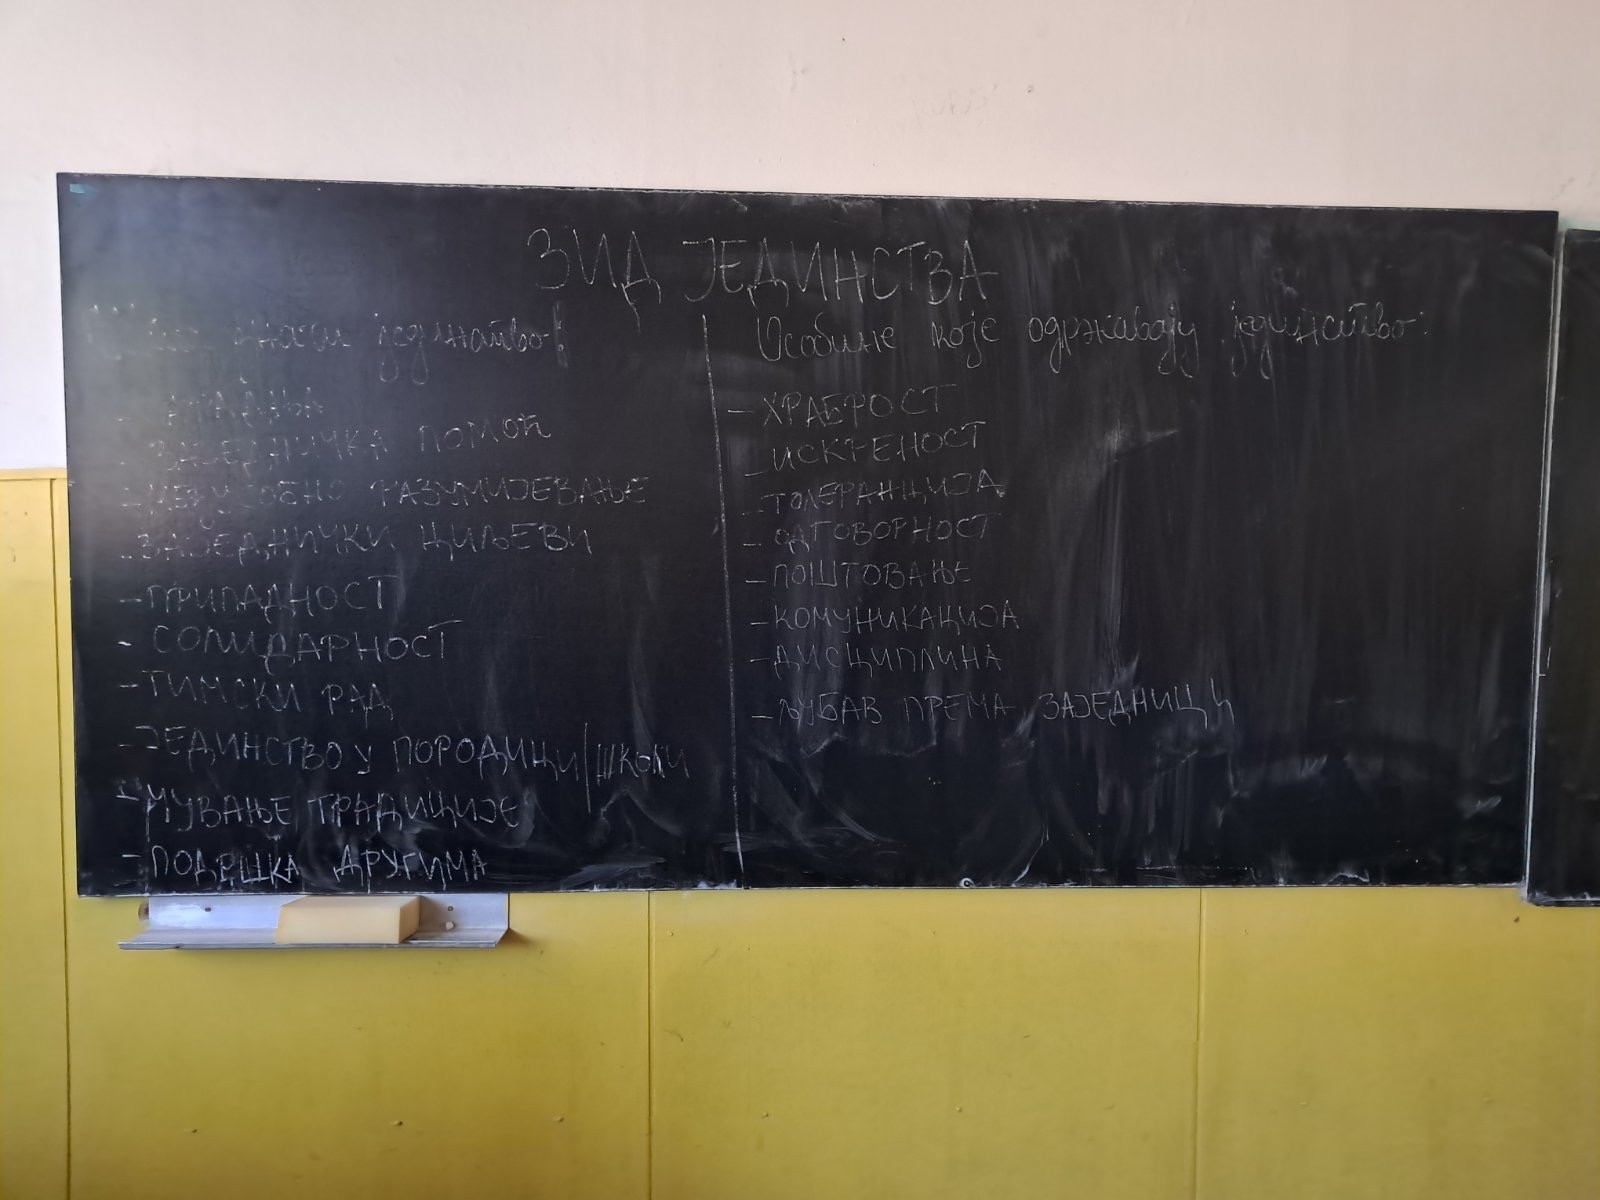 ЗИД ЈЕДИНСТВА
Шта значи јединство?
- САРАДЊА
- ЗАЈЕДНИЧКА ПОМОЋ
- МЕЂУСОБНО РАЗУМИЈЕВАЊЕ
- ЗАЈЕДНИЧКИ ЦИЉЕВИ
- ПРИПАДНОСТ
- СОЛИДАРНОСТ
- ТИМСКИ РАД
- ЈЕДИНСТВО У ПОРОДИЦИ/ШКОЛИ
- ЧУВАЊЕ ТРАДИЦИЈЕ
- ПОДРШКА ДРУГИМА
Особине које одржавају јединство:
- ХРАБРОСТ
- ИСКРЕНОСТ
- ТОЛЕРАНЦИЈА
- ОДГОВОРНОСТ
- ПОШТОВАЊЕ
- КОМУНИКАЦИЈА
- ДИСЦИПЛИНА
- ЉУБАВ ПРЕМА ЗАЈЕДНИЦИ